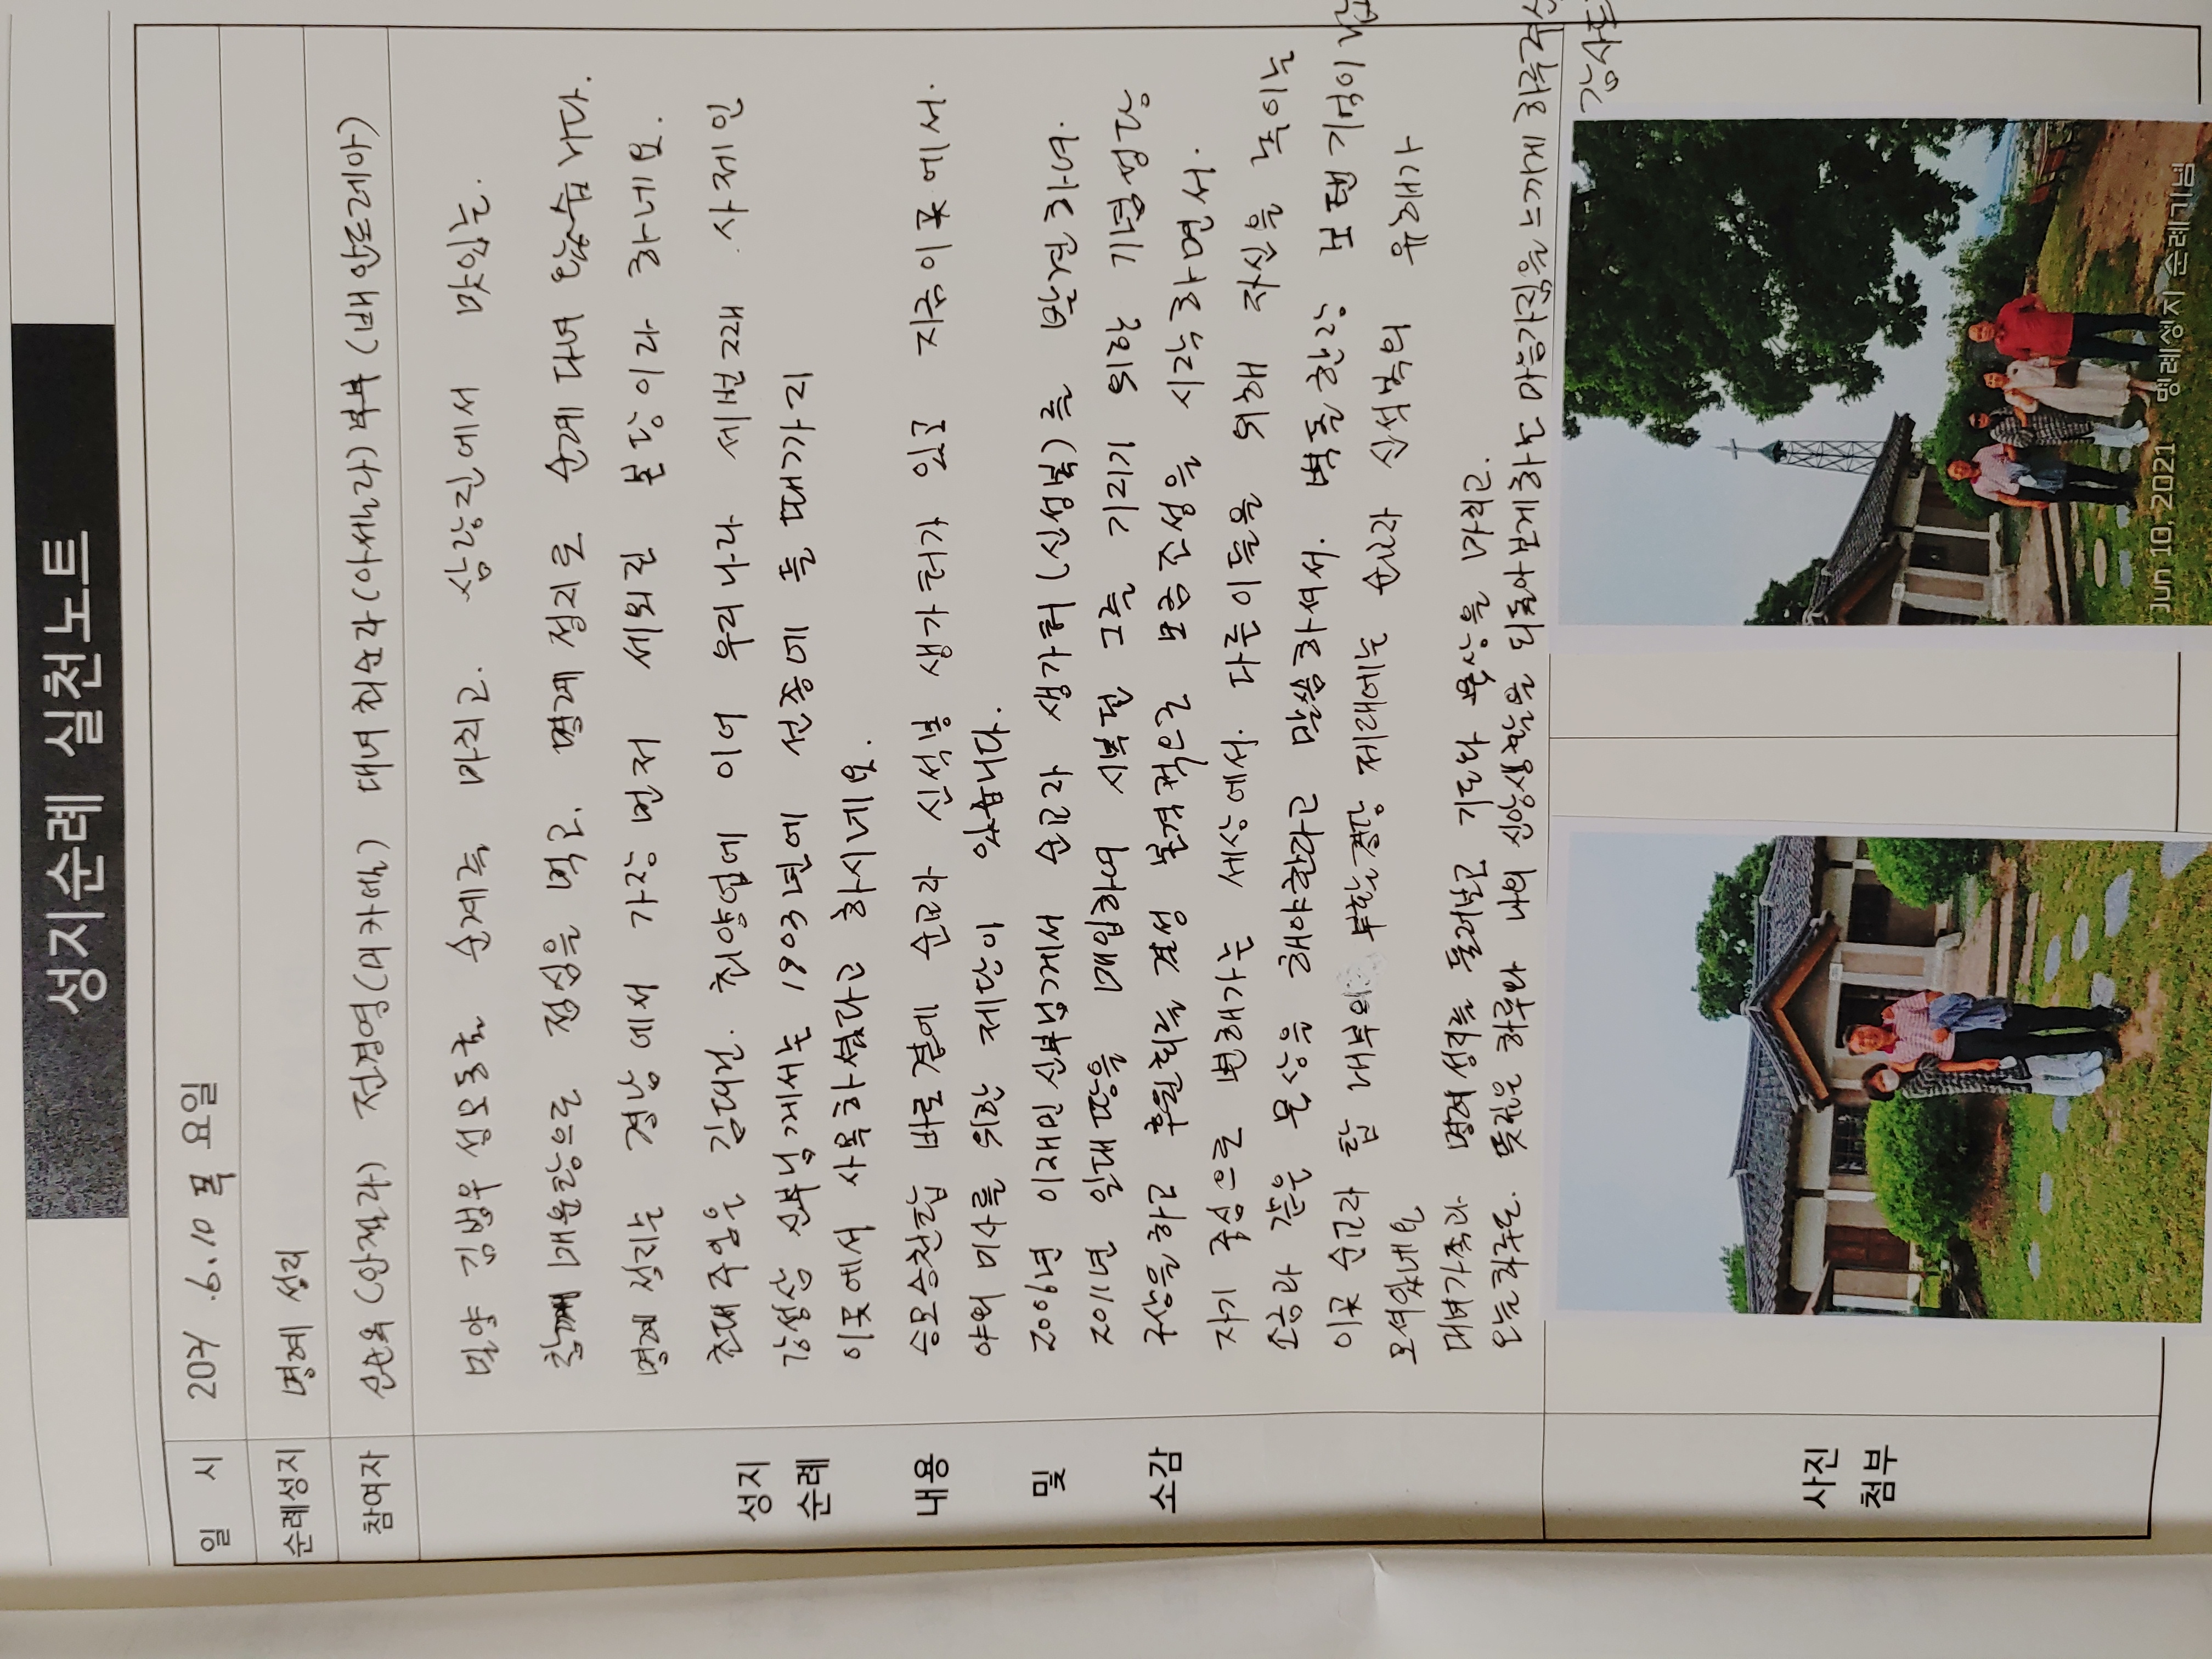 성지순례 실천노트
일 시 2021. 6. 10 목 요일
순례성지 명례 성지
참여자 신순옥 (안젤라) 전경영(미카엘) 대녀 최순자(아셀라) 부부 (배 안드레아)
밀양 김범우 성모동굴 순례를 마치고. 삼랑진에서 맛있는.
함께 매운탕으로 점심을 먹고. 명례 성지로 순례 다녀 왔습니다.
명례 성지는 경남에서 가장 먼저 세워진 본당이라 하네요.
천대주임은 김대건. 최양업에 이어 우리나라 세번째 사제인
강성삼 신부님께서는 1903년에 선종에 들 때가지
이곳에서 사목하셨다고 하시네요.
승모승천탑 바로곁에 순교자 신석봉 생가터가 있고 지금이곳에서.
야외 미사를 위한 제단이 있습니다.
2006년 이재민 신부님게서 순교자 생가터(신성복)를 발견하여.
2011년 일대땅을 매입하여 시복된 그를 기리기 위한 기념성당
구상을하고 후원회를 결성 본격적으로 모금조성을 시작하면서.
자기 중심으로 변해가는 세상에서. 다른이들을 위해 자신을 녹이는
소금과 같은 묵상을 해야한다고 말씀하셔서.
이곳 순교자 탑 내부의 부활 제대에는 순교자 신석복의 유해가
모셔있네요
대녀가족과 명례성지를 둘러보고 기도와 묵상을 마치고.
오늘하루도 뜻깊은 하루다 나의 신앙생활을 되돌아보게하는 마음가짐을 느끼게 하루
감사
성지
순례
내용
및
소감
사진
첨부
Jun 10, 2021 명례성지 순례기념